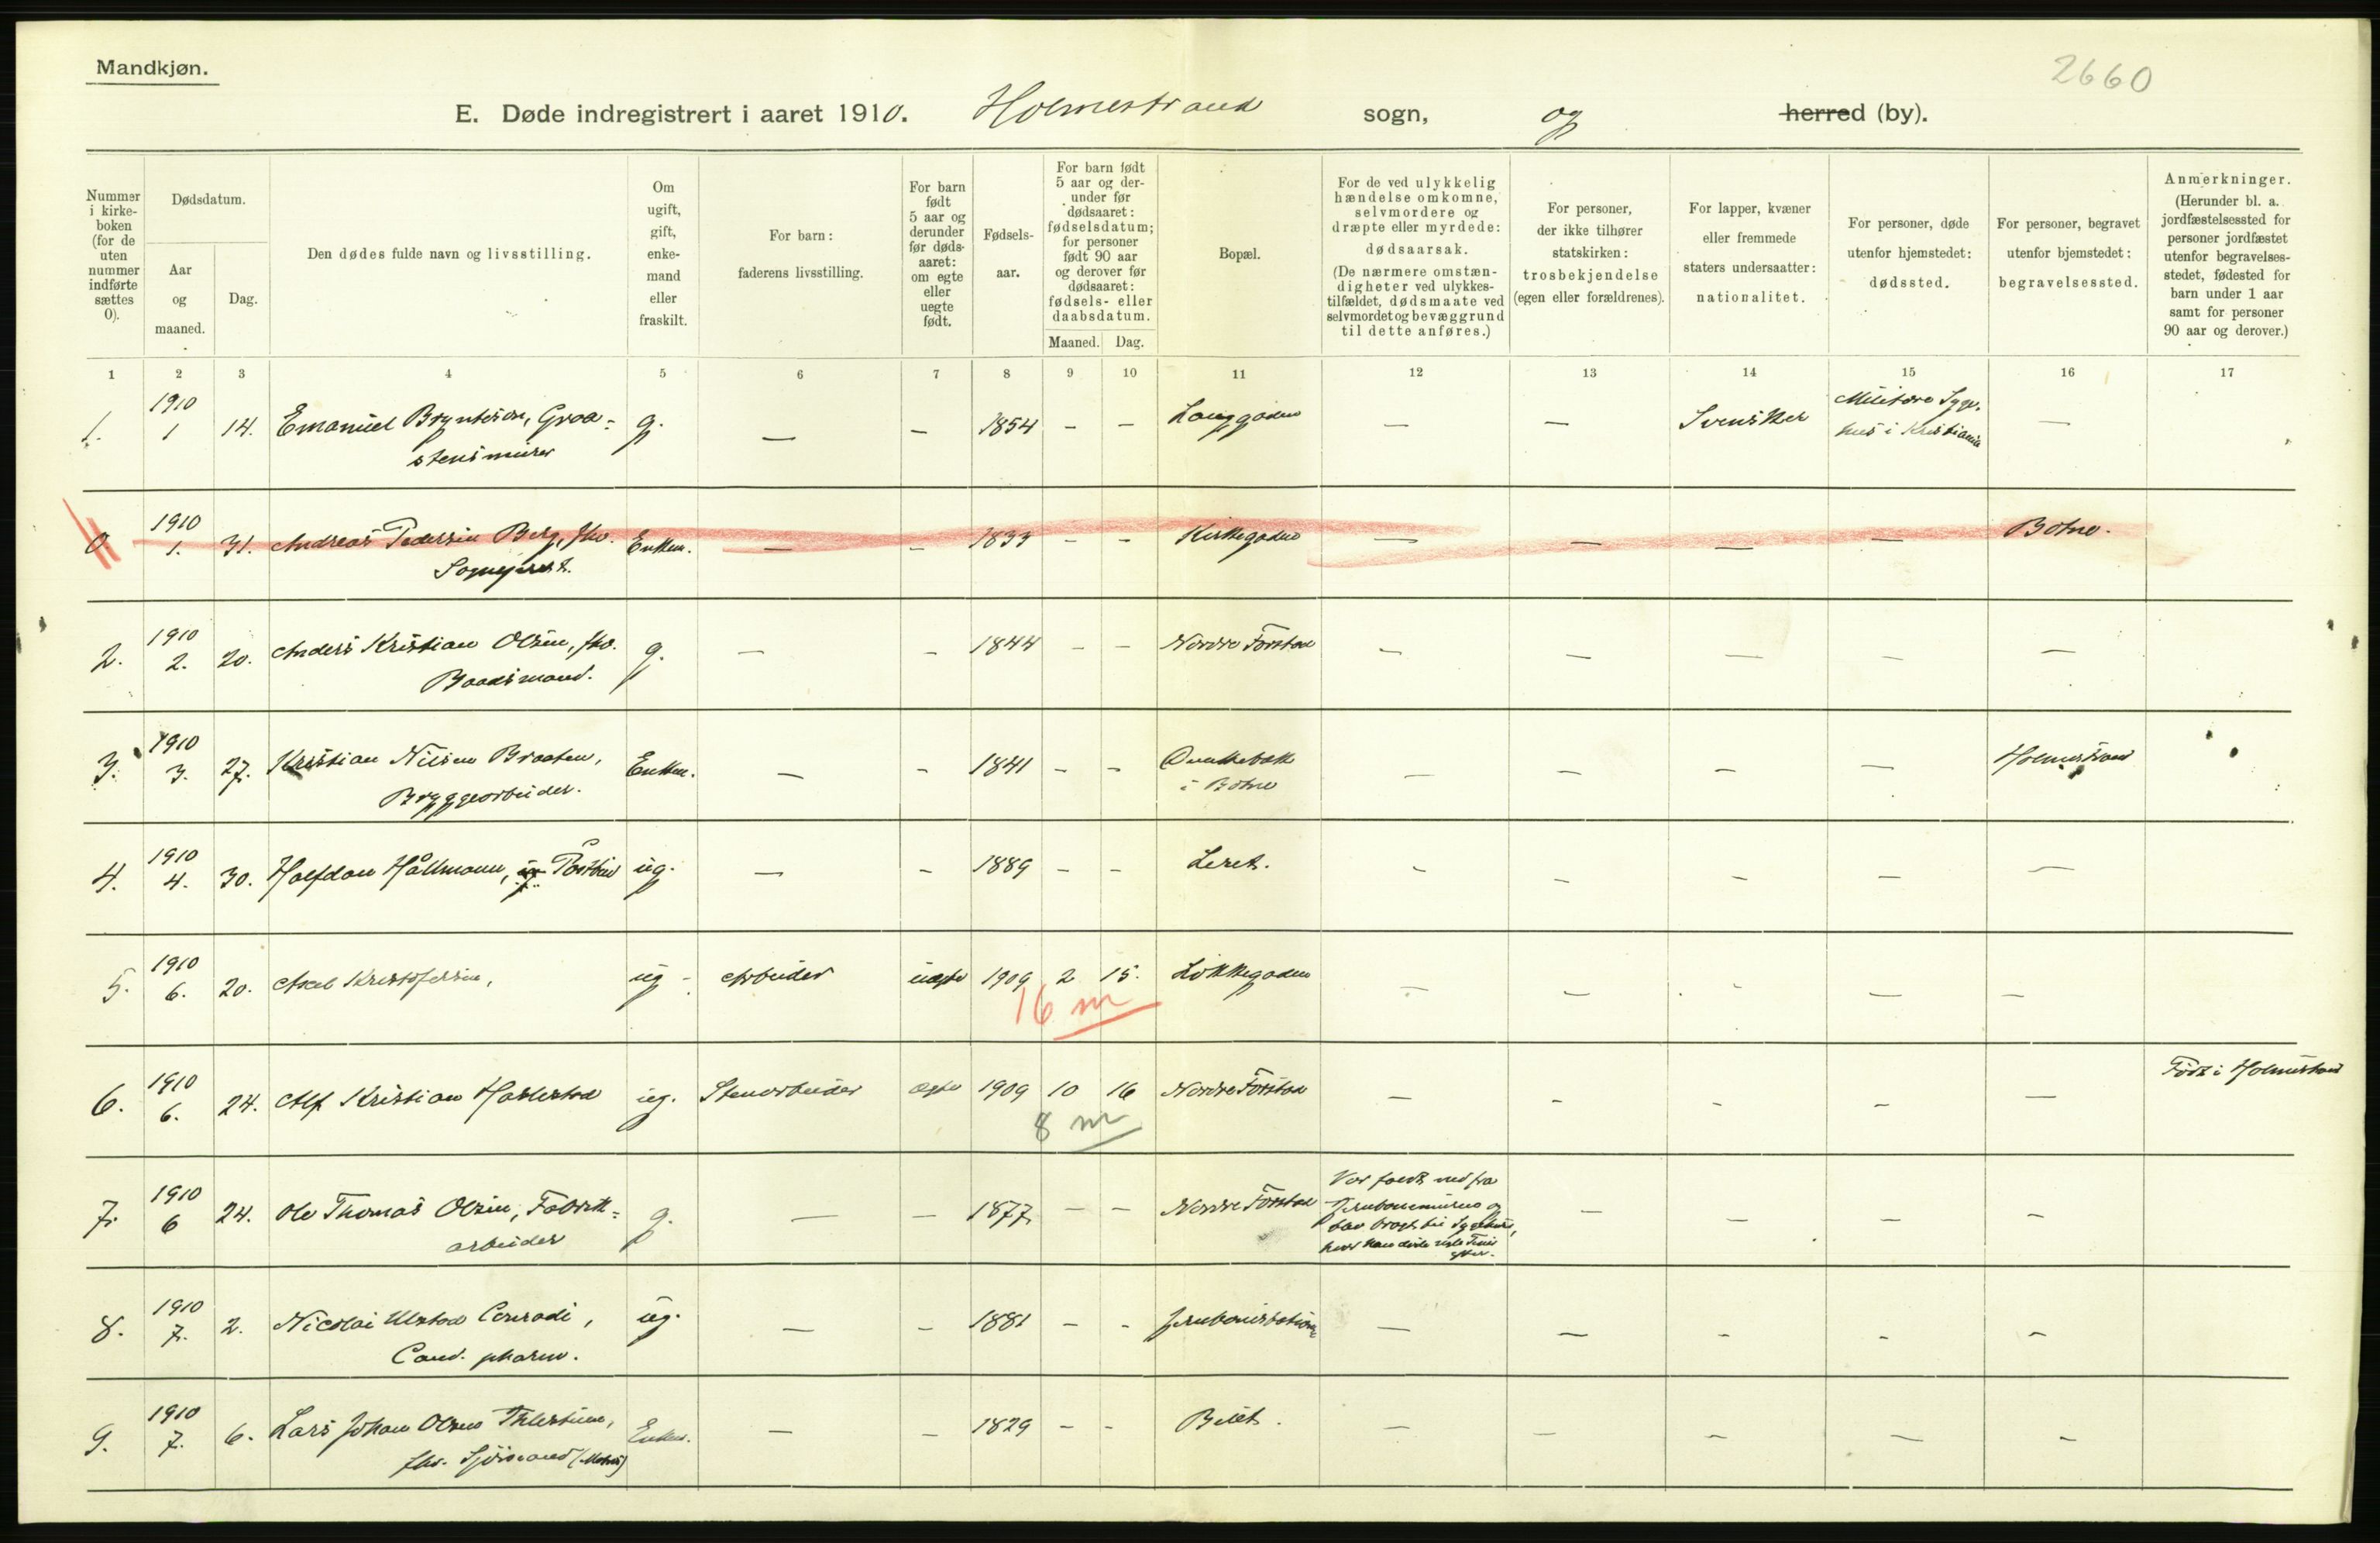 Mandkjøn.
2660
E. Døde indregistrert i aaret 1910. Holmestrand sogn, og herred (by).
Nummer i kirke-boken (for de uten nummer indførte sættes 0).
Dødsdatum.
Aar og maaned.
Dag.
Den dødes fulde navn og livsstilling.
Om ugift, gift, enke-mand eller fraskilt.
For barn: faderens livsstilling.
For barn født 5 aar og derunder før døds-aaret: om egte eller uegte født.
Fødsels-aar.
For barn født 5 aar og der-under før dødsaaret: fødselsdatum; for personer født 90 aar og derover før dødsaaret: fødsels- eller daabsdatum.
Maaned. Dag.
Bopæl.
For de ved ulykkelig hændelse omkomne, selvmordere og dræpte eller myrdede: dødsaarsak. (De nærmere omstæn-digheter ved ulykkes-tilfældet, dødsmaate ved selvmordet og bevæggrund til dette anføres.)
For personer, der ikke tilhører statskirken: trosbekjendelse (egen eller forældrenes).
For lapper, kvæner eller fremmede staters undersaatter: nationalitet.
For personer, døde utenfor hjemstedet: dødssted.
For personer, begravet utenfor hjemstedet: begravelsessted.
Anmerkninger. (Herunder bl. a. jordfæstelsessted for personer jordfæstet utenfor begravelses-stedet, fødested for barn under 1 aar samt for personer 90 aar og derover.)
1 2 3 4 5 6 7 8 9 10 11 12 13 14 15 16 17
1. 1910 1 14. Emanuel Bryntesen, Graa- g. — — 1854 - - Langgaden — — Svensker Militære Syge-
stensmurer hus i Kristiania —
0 1910 1. 31. Andreas Pedersen Berg, fhv. Enkem. — — 1833 - - Kirkegaden — — — — Botne.
Sogneprest.
2. 1910 2. 20. Anders Kristian Olsen, fhv. g. — — 1844 - - Nordre Forstad — — — — —
Baadsmand.
3. 1910 3. 27. Kristian Nilsen Braaten, Enkem. — — 1841 - - — — — — Holmestrand
Bryggearbeider. i Botne
4. 1910 4. 30. Halfdan Hallmann, Postbud ug. — — 1889 - - Leret. - — — — —
5. 1910 6. 20. Axel Kristofersen, ug - Arbeider uegte 1909 2 15. Løkkegaden — — - — —
16 m
6. 1910 6. 24. Alf Kristian Haslestad ug. Stenarbeider egte 1909 10 16 Nordre Forstad — - - - — Født i Holmestrand
8 m
7. 1910 6 24. Ole Thomas Olsen, Fabrik- g. — — 1877 - - Nordre Forstad Var faldt ned fra
arbeider Jernbanemuren og
blev bragt til Sygehus,
hvor han døde siste Time
efter.
8. 1910 7. 2. Nicolai Ulstad Conradi, ug. — — 1881 - - Jernbanestationen — — - - -
Cand. pharm.
9. 1910 7. 6. Lars Johan Olsen Enkem. — — 1829 - - — — - — -
fhv. Sjømand